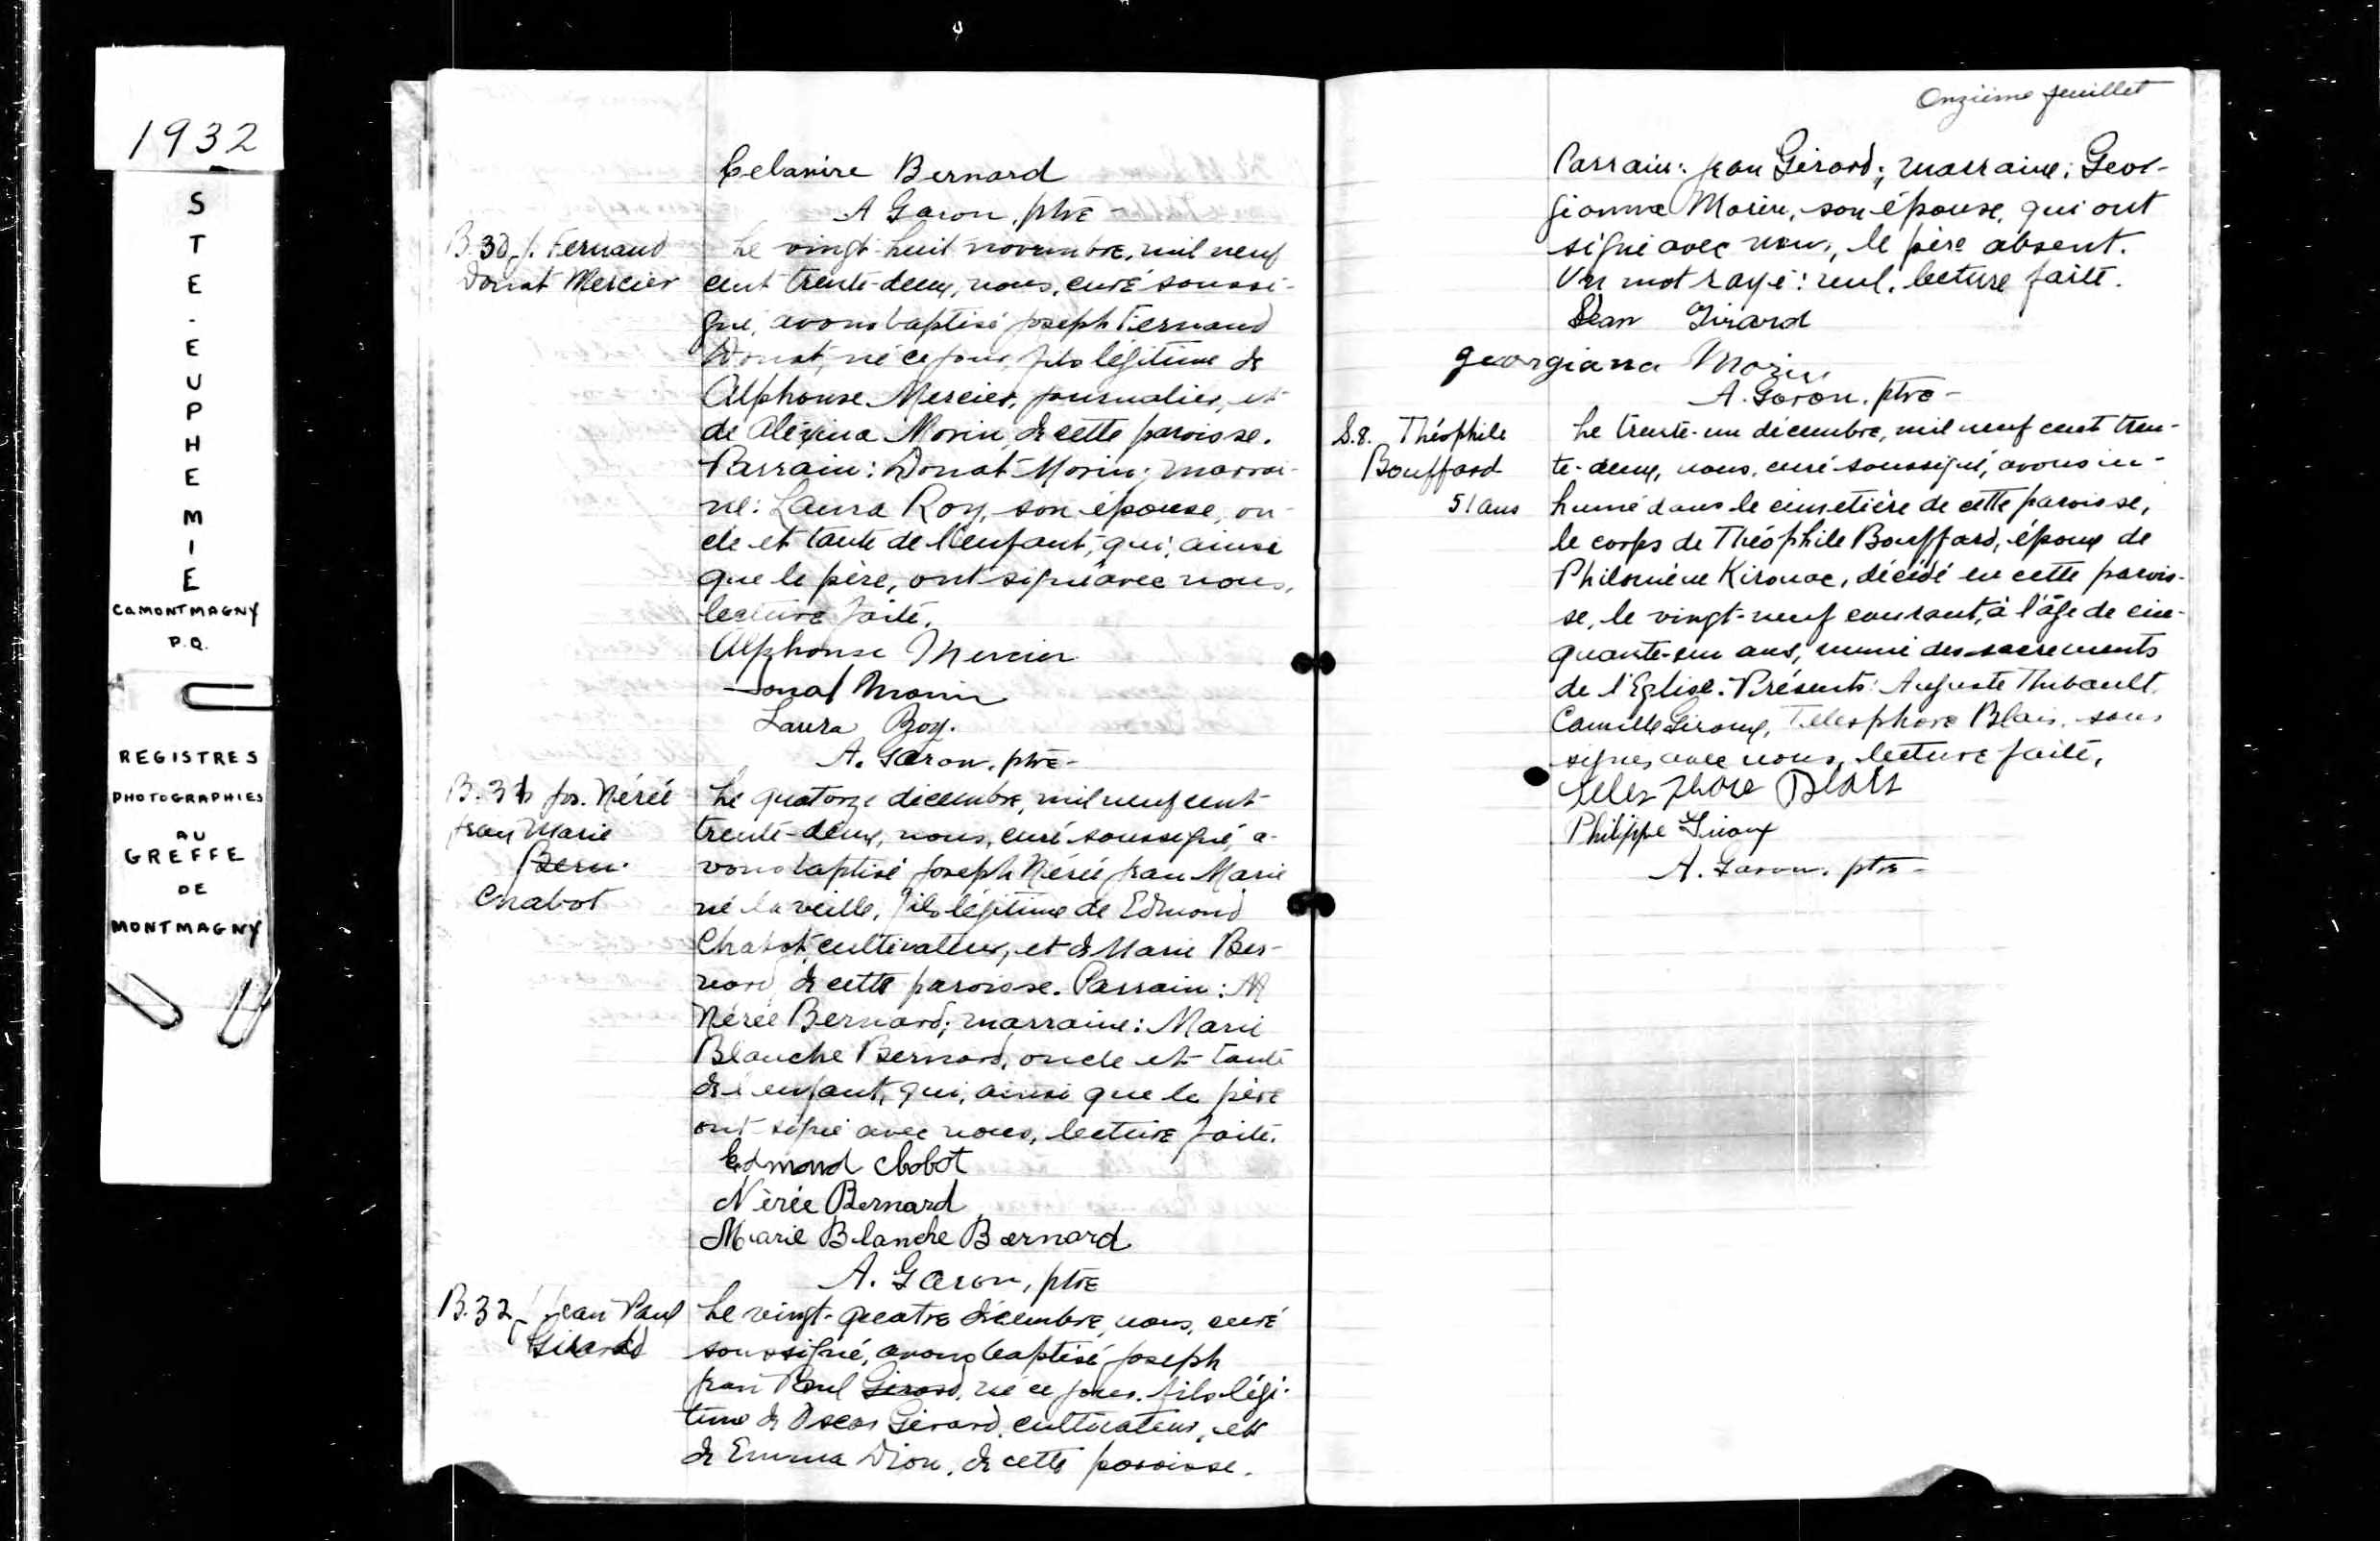 1932
S
T
E
.
E
U
P
H
E
M
I
E
Co MONTMAGNY
P.Q.
REGISTRES
PHOTOGRAPHIES
AU
GREFFE
DE
MONTMAGNY
Celanire Bernard
A Garon, ptre -
B. 30 J. Fernand
Donat Mercier
Le vingt-huit novembre, mil neuf
cent trente-deux, nous, curé soussi-
gné, avons baptisé Joseph Fernand
Donat, né ce jour, fils légitime de
Alphonse Mercier, journalier, et
de Alexina Morin, de cette paroisse.
Parrain: Donat Morin; marrai-
ne: Laura Roy, son épouse, on-
cle et tante de l'enfant, qui, ainsi
que le père, ont signé avec nous,
lecture faite.
Alphonse Mercier
Donat Morin
Laura Roy.
A. Garon, ptre -
B. 31 Jos. Nérée
Jean Marie
Bern.
Chabot
Le quatorze décembre, mil neuf cent
trente-deux, nous, curé soussigné, a-
vons baptisé Joseph Nérée Jean Marie
né la veille, fils légitime de Edmond
Chabot, cultivateur, et de Marie Ber-
nard, de cette paroisse. Parrain: M
Nérée Bernard; marraine: Marie
Blanche Bernard, oncle et tante
de l'enfant, qui, ainsi que le père
ont signé avec nous, lecture faite.
Edmond Chabot
Nérée Bernard
Marie Blanche Bernard
A. Garon, ptre
B. 32 J. Jean Paul
Girard
Le vingt-quatre décembre, nous, curé
soussigné, avons baptisé Joseph
Jean Paul Girard, né ce jour, fils légi-
time de Oscar Girard, cultivateur, et
de Emma Dion, de cette paroisse.
Onzième feuillet
Parrain: Jean Girard; marraine: Geor-
gianna Morin, son épouse, qui ont
signé avec nous, le père absent.
Un mot rayé: nul. lecture faite.
Jean Girard
georgianna Morin
A. Garon, ptre -
S.8. Théophile
Bouffard
51 ans
Le trente-un décembre, mil neuf cent tren-
te-deux, nous, curé soussigné, avons in-
humé dans le cimetière de cette paroisse,
le corps de Théophile Bouffard, époux de
Philomène Kirouac, décédé en cette parois-
se, le vingt-neuf courant, à l'âge de cin-
quante-un ans, muni des sacrements
de l'Eglise. Présents: Auguste Thibault,
Camille Giroux, Télesphore Blais, sous
signés avec nous, lecture faite,
Telesphore Blais
Philippe Giroux
A. Garon, ptre -